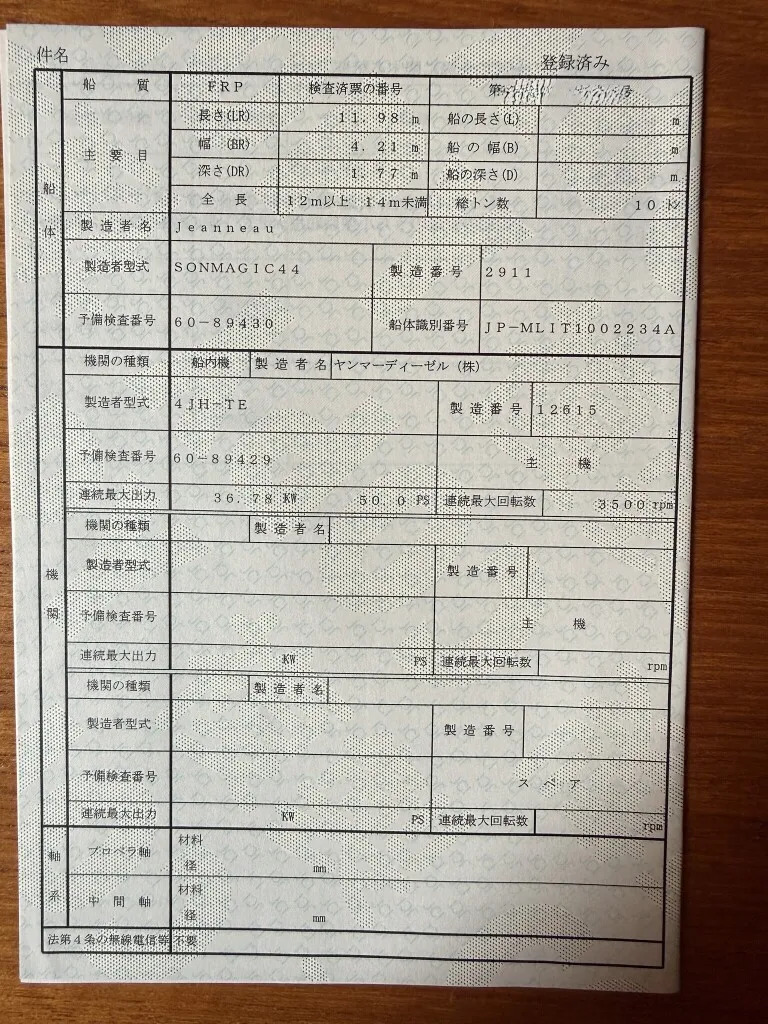 件名 登録済み
船質 ＦＲＰ 検査済票の番号 第
主要目 長さ(LR) １１．９８ m 船の長さ(L) m
幅(BR) ４．２１ m 船の幅(B) m
深さ(DR) １．７７ m 船の深さ(D) m
全長 １２ｍ以上 １４ｍ未満 総トン数 １０ ﾄﾝ
船体
製造者名 Ｊｅａｎｎｅａｕ
製造者型式 ＳＯＮＭＡＧＩＣ４４ 製造番号 ２９１１
予備検査番号 ６０－８９４３０ 船体識別番号 ＪＰ－ＭＬＩＴ１００２２３４Ａ
機関の種類 船内機 製造者名 ヤンマーディーゼル（株）
製造者型式 ４ＪＨ－ＴＥ 製造番号 １２６１５
予備検査番号 ６０－８９４２９ 主機
連続最大出力 ３６．７８ KW ５０．０ PS 連続最大回転数 ３５００ rpm
機関の種類 製造者名
製造者型式 製造番号
機関
予備検査番号 主機
連続最大出力 KW PS 連続最大回転数 rpm
機関の種類 製造者名
製造者型式 製造番号
予備検査番号 スペア
連続最大出力 KW PS 連続最大回転数 rpm
軸系
プロペラ軸 材料
径 mm
中間軸 材料
径 mm
法第４条の無線電信等 不要